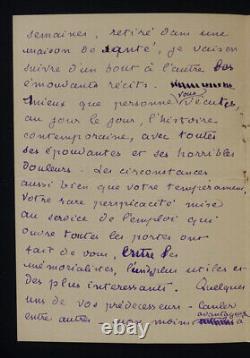 semaines, retiré dans une
maison de santé, je vais en
suivre d'un bout à l'autre vos
émouvants récits.
Mieux que personne vous vécûtes
au jour le jour, l'histoire
contemporaine, avec toutes
ses épouvantes et ses horribles
douleurs. Les circonstances
aussi bien que votre tempérament,
votre rare perspicacité mise
au service de l'emploi qui
ouvre toutes les portes ont
fait de vous, entre les
mémorialistes, l'un des plus utiles et
des plus intéressants. Quelques
uns de vos prédécesseurs - Canler
entre autres non moins avantageux à
© ebayshopkorea.com